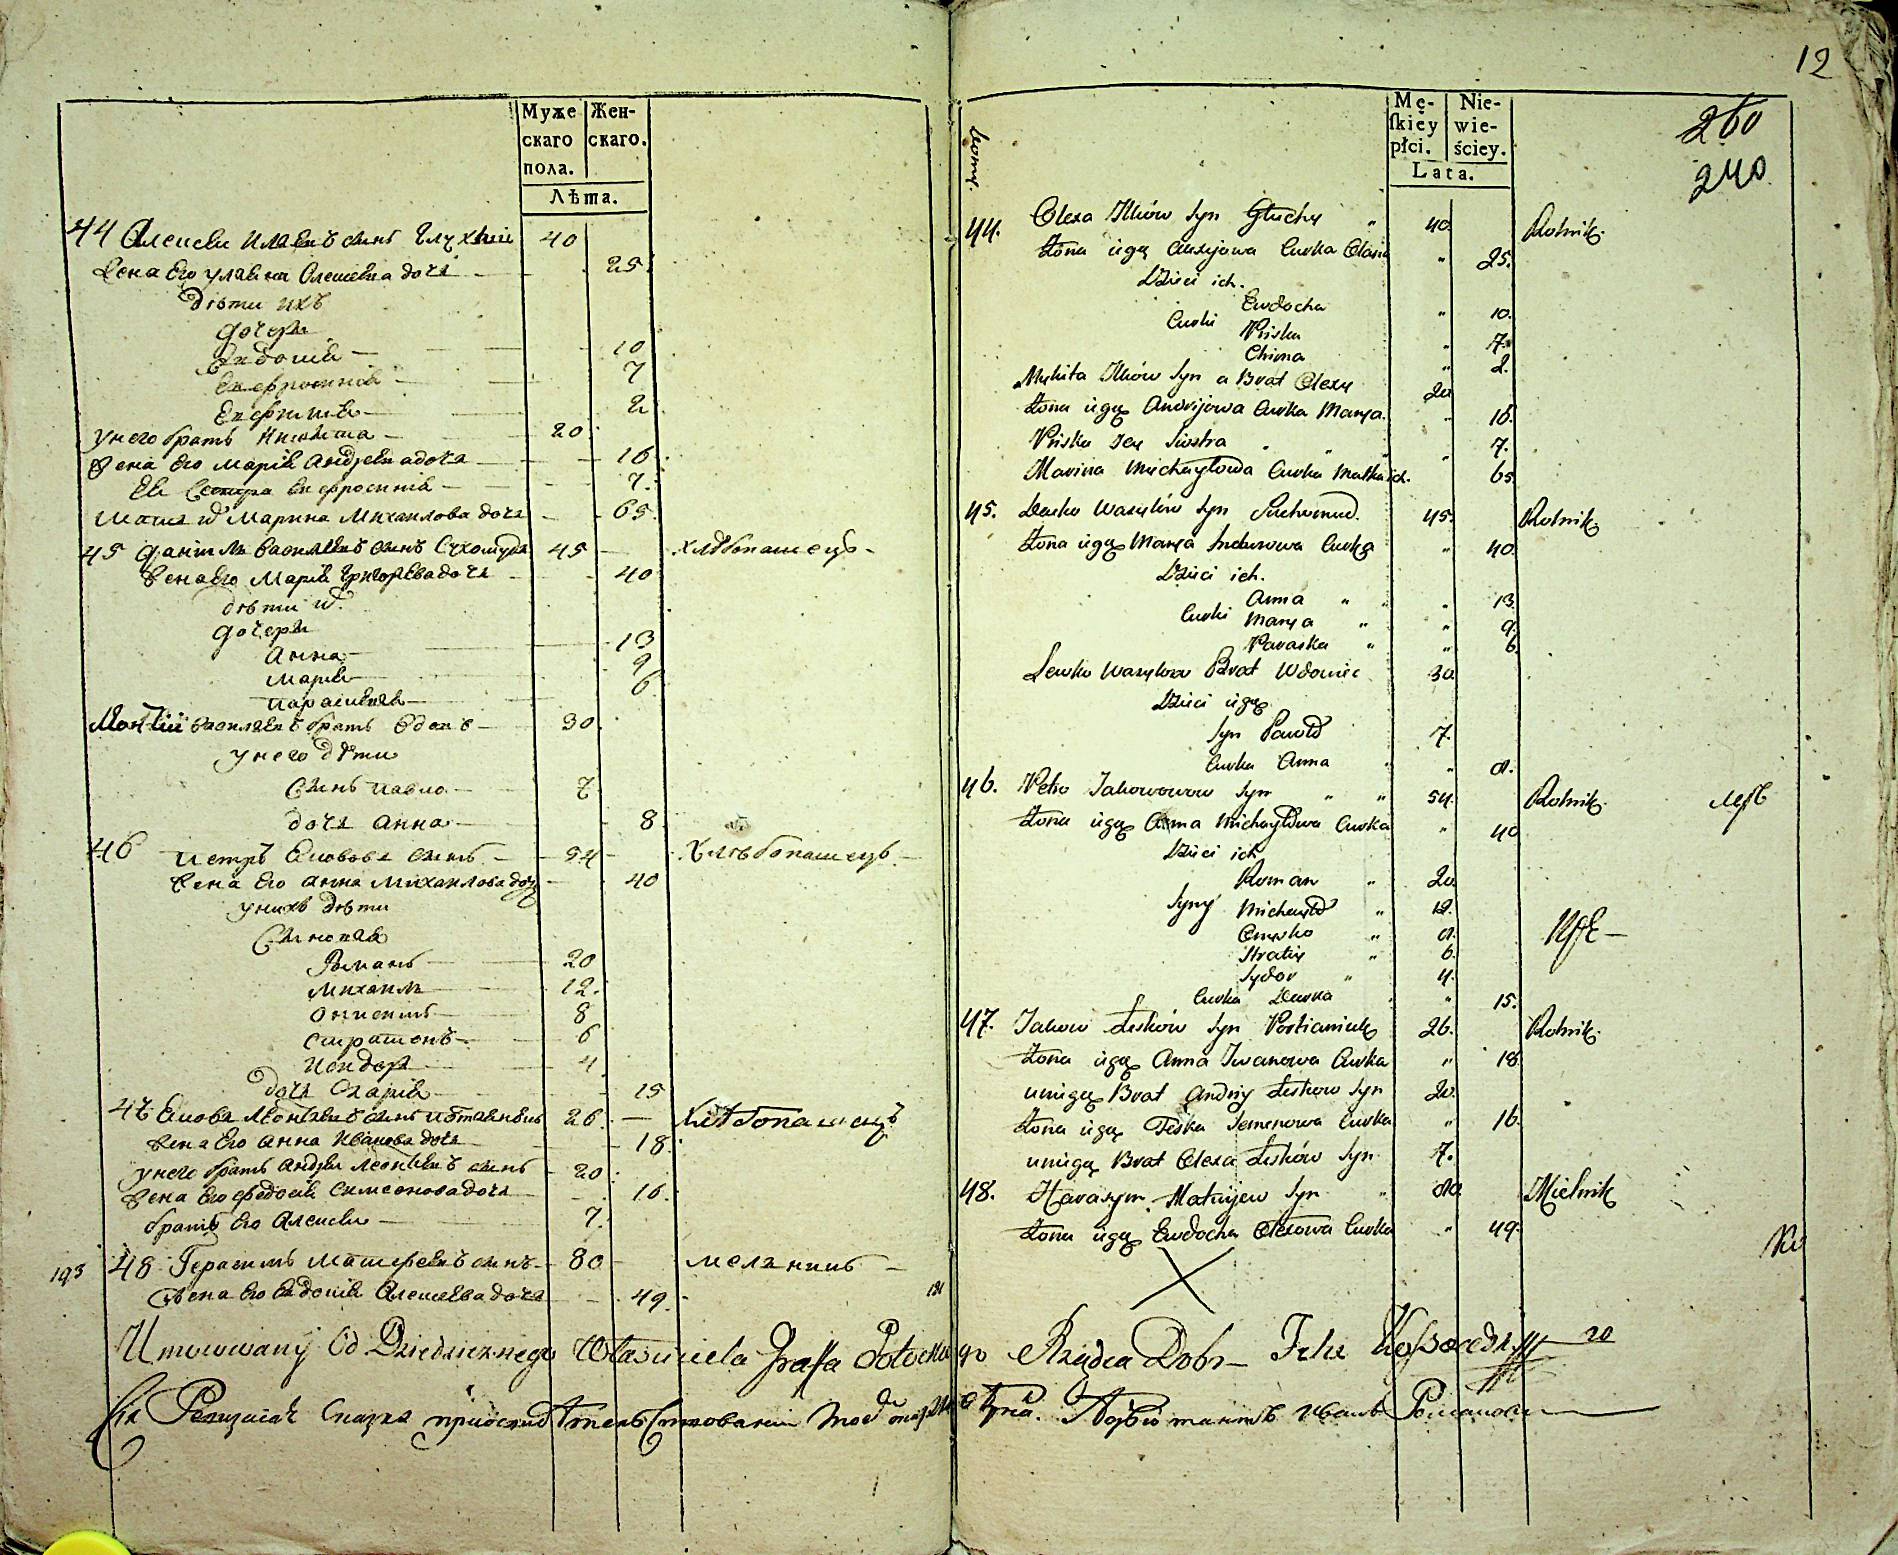 Муже
скаго
пола.
Жен-
скаго.
Лѣта.
44 Алексѣй Илиевъ сынъ Глухий 40
Жена Его Улияна Олексѣева дочь 25
дѣти ихъ
дочери
Евдокия 10
Ефросиния 7
Евфимия 2
у него братъ Никита 20
Жена Его Мария Андреева дочь 16
Ея Сестра Ефросиния 7.
мать их Марина Михаилова дочь 65
45 Данилъ Василиевъ сынъ Сухомудъ 45 хлѣбопашецъ
Жена Его Мария Григорева дочь 40
дѣти их.
дочери
Анна 13
Мария 9
Параскевия 6
Леонтий Василиевъ братъ вдовъ 30
у него дѣти
Сынъ Павло 7
дочь Анна 8
46 Петръ Якововъ сынъ 54 Хлѣбопашецъ
Жена Его Анна Михаилова дочь 40
у нихъ дѣти
Синовия
Романъ 20
Михаилъ 12.
Онисимъ 8
Стратонъ 6
Исидоръ 4
дочь 15
47 Яковъ Леонтиевъ сынъ 26 Хлѣбопашецъ
Жена Его Анна Иванова дочь 18
у него братъ Андрей Леонтиевъ сынъ 20
Жена Его Федосия Симеонова дочь 16.
братъ Его Алексѣй 7.
193 48 Герасимъ Матфеевъ сынъ 80 мелникъ
Жена Его Евдокия Алексѣева дочь 49.
191
12
260
240
Mę-
ſkiéy
płci.
Nie-
wie-
ściey.
Lata.
Domy.
44. Olexa Ilków Syn Głuchy " 40. Rolnik.
Żona iego Alexijowa Curka " 25.
Dzieci ich.
Curki Ewdocha " 10.
Priska " 7.
Chima " 2.
Mykita Ilków Syn a Brat Olexy 20
Żona iego Andrijowa Curka Marya. " 16.
Priska Jey Siostra " 7.
Marina Michayłowa Curka Matka ich. 65
45. Dacko Wasylów Syn Suchomud. 45. Rolnik
Żona iego Marya Curka " 40.
Dzieci ich.
Curki Anna " 13.
Marya " 9.
Paraska " 6.
Lewko Wasylow Brat Wdowiec 30
Dzieci iego
Syn Pawło 7.
Curka Anna " 8.
46. Petro Jakowowow Syn " " 54. Rolnik.
Żona iego Anna Michayłowa Curka " 40
Dzieci ich
Syny Roman " 20.
Michayło " 12.
Onysko " 8.
Stratiy " 6.
Sydor " 4.
Curka " 15.
47. Jakow Leśków Syn 26. Rolnik.
Żona iego Anna Iwanowa Curka " 18
u niego Brat Andriy Leśkow Syn 20.
Żona iego Feśka Semenowa Curka " 16.
u niego Brat Olexa Leśków Syn 7.
48. Harasym Matwijew Syn " 80. Mielnik
Żona iego Ewdocha Olexowa Curka " 49.
Umocowany Od Dziedzicznego Własciciela Grafa Potockiego Rządca Dobr
Сия Ревизская Сказка Адъютантъ Иванъ Романовъ